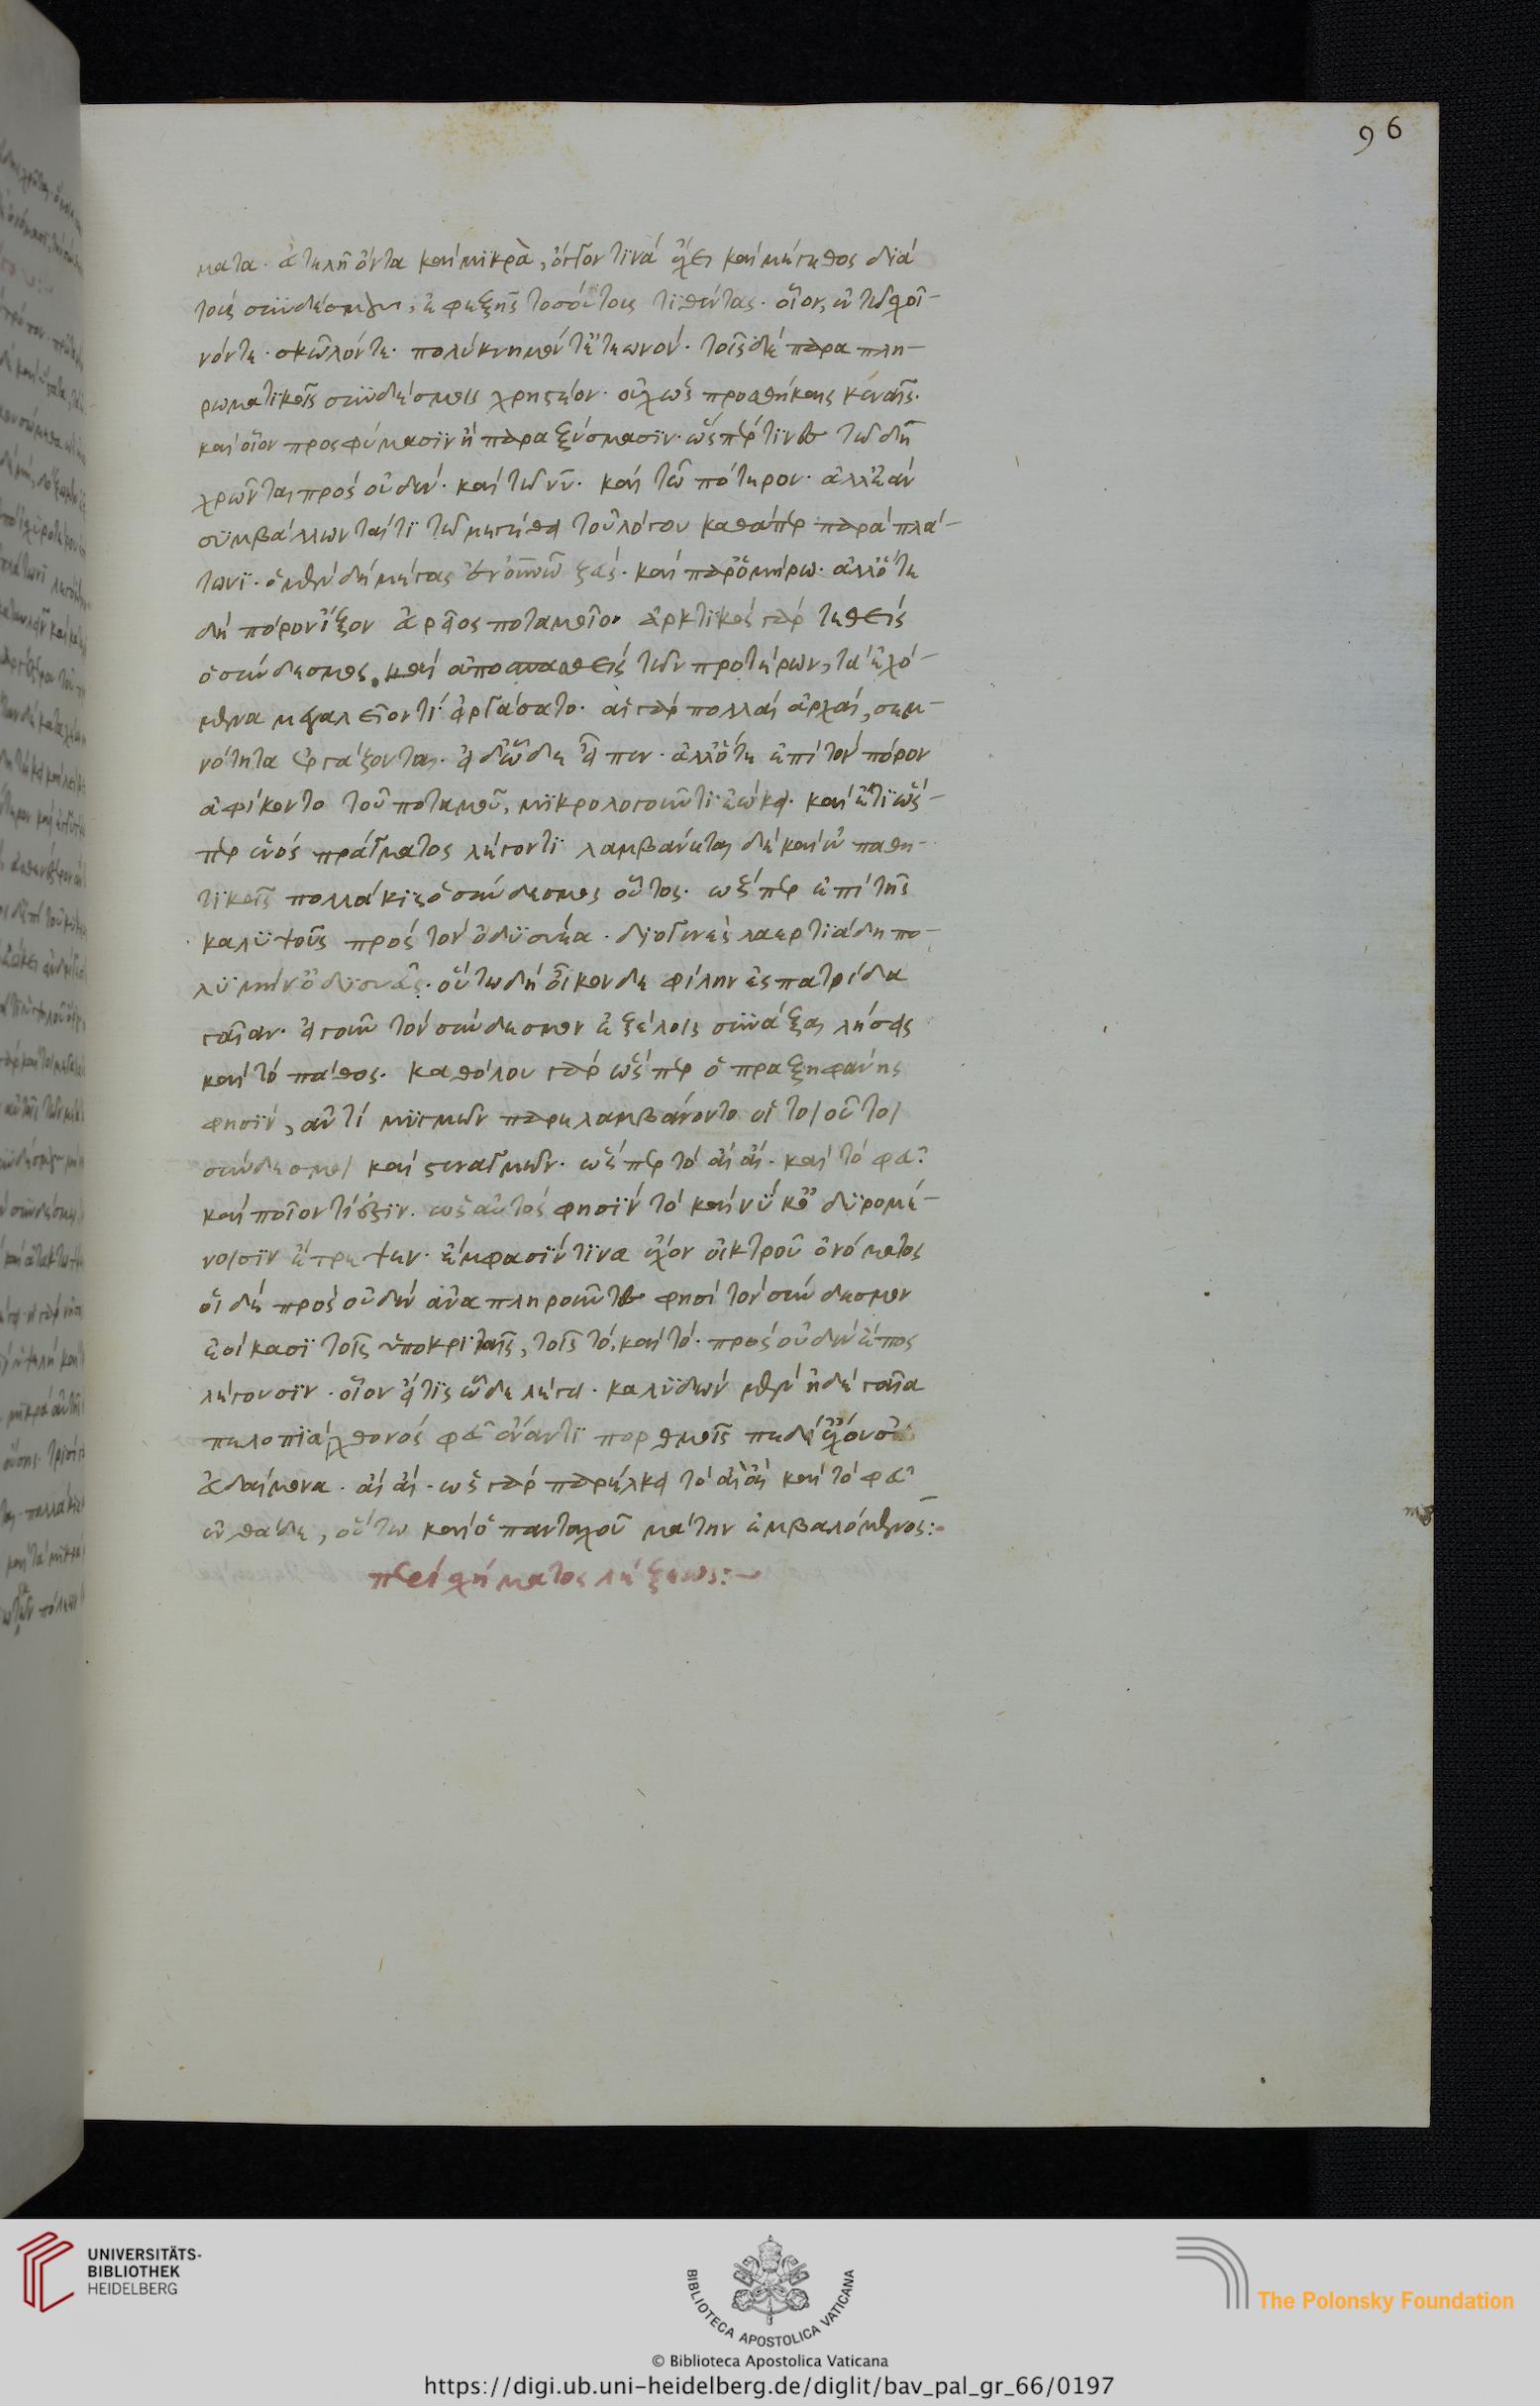 96
ματα. ἀτελῆ ὄντα καὶ μικρὰ, ὄγκον τινὰ ἔχει καὶ μέγεθος διὰ
τοὺς συνδέσμους, ἐφεξῆς τοσούτοις τιθέντας. οἷον,
σκῶλόν τε. πολύκνημόν τ' ἐτεωνόν. τοῖς δὲ παραπλη-
ρωματικοῖς συνδέσμοις χρηστέον. οὐχ ὡς προσθήκαις κεναῖς.
καὶ οἷον προσφύμασιν ἢ παραξύσμασιν. ὥσπερ τινες τῶ δὴ
χρῶνται πρὸς οὐδέν. καὶ τῶ νῦ. καὶ τῶ πότερον. ἀλλ' ἐὰν
συμβάλλωνταί τι τῶ μεγέθει τοῦ λόγου καθάπερ παρὰ πλά-
τωνι. ὁ μὲν δὴ μέγας ἐν οὐνῶ ζεύς. καὶ παρ' ὁμήρω. ἀλλ' ὅτε
δὴ πόρον ἷξον ποταμοῖο ἀρκτικὸς γὰρ τεθεὶς
ὁ σύνδεσμος, καὶ ἀποσπασθεὶς τῶν προτέρων, τὰ ἐχό-
μενα μεγαλεῖόν τι εἰργάσατο. αἱ γὰρ πολλαὶ ἀρχαὶ, σεμ-
νότητα ἐργάζονται. εἰ δ' ὧδε εἶπεν. ἀλλ' ὅτε ἐπὶ τὸν πόρον
ἀφίκοντο τοῦ ποταμοῦ, μικρολογοῦντι ἐώκει. καὶ ἔτι ὥσ-
περ ἑνὸς πράγματος λέγοντι λαμβάνεται δὲ καὶ ἐν παθη-
τικοῖς πολλάκις ὁ σύνδεσμος οὗτος. ὥσπερ ἐπὶ τῆς
καλυψοῦς πρὸς τὸν ὀδυσσέα. διογενὲς λαερτιάδη πο-
λυμήχαν' ὀδυσσεῦ. οὕτω δὴ οἶκόνδε φίλην ἐς πατρίδα
γαῖαν. εἰ γοῦν τὸν σύνδεσμον ἐξέλοις συνάξαι λήσεις
καὶ τὸ πάθος. καθόλου γὰρ ὥσπερ ὁ πραξηφάνης
φησὶν, ἀντὶ μυγμῶν παρελαμβάνοντο οἱ τοιοῦτοι
σύνδεσμοι καὶ στεναγμῶν. ὥσπερ τὸ αἲ αἲ. καὶ τὸ φεῦ
καὶ ποῖόν τί ἐστιν. ὡς αὐτός φησὶν τὸ καὶ νύ κ' ὀδυρομέ-
νοισιν ἔπρεψεν. ἔμφασίν τινα ἔχον οἰκτροῦ ὀνόματος
οἱ δὲ πρὸς οὐδὲν ἀναπληροῦντες φησὶ τὸν σύνδεσμον
ἐοίκασι τοῖς ὑποκριταῖς, τοῖς τὸ, καὶ τὸ. πρὸς οὐδὲν ἔπος
λέγουσιν. οἷον εἴ τις ὧδε λέγει. καλυδὼν μὲν ἡδὲ γαῖα
πελοπία χθονὸς φεῦ ἐν ἀντιπόρθμοις πεδί' ἔχουσ'
εὐδαίμονα. αἲ αἲ. ὡς γὰρ παρέλκει τὸ αἲ αἲ καὶ τὸ φεῦ
ἐνθάδε, οὕτω καὶ ὁ πανταχοῦ μάτην ἐμβαλόμενος:-
περὶ σχήματος λέξεως:-
UNIVERSITÄTS-
BIBLIOTHEK
HEIDELBERG
BIBLIOTECA APOSTOLICA VATICANA
The Polonsky Foundation
© Biblioteca Apostolica Vaticana
https://digi.ub.uni-heidelberg.de/diglit/bav_pal_gr_66/0197